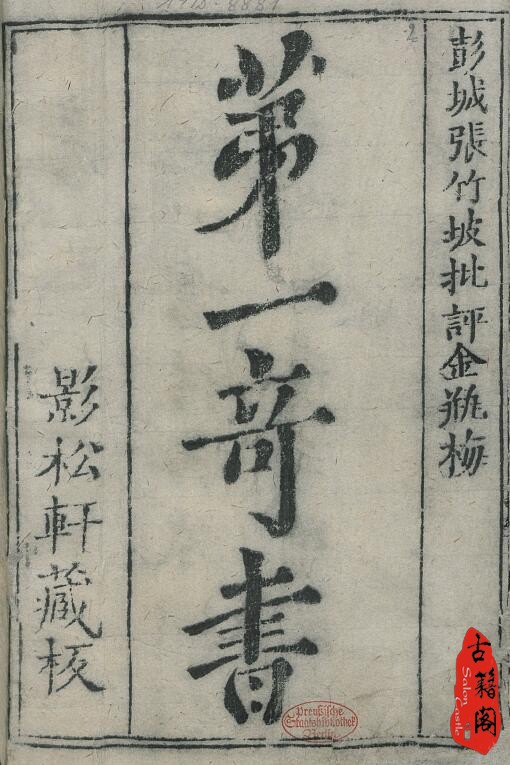 彭城張竹坡批評金瓶梅
第一奇書
影松軒藏板
Preußische
Staatsbibliothek
Berlin
古籍阁
Salon Castle
2